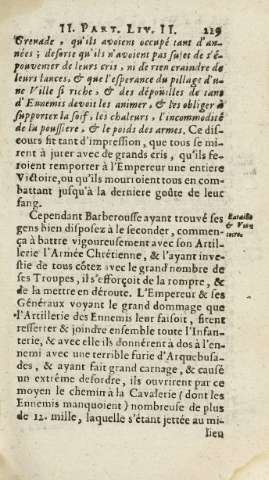 II. PART. LIV. II. 219
Grenade, qu'ils avoient occupé tant d'an-
nées; desorte qu'ils n'avoient pas sujet de s'é-
pouventer de leurs cris, ni de rien craindre de
leurs lances, & que l'esperance du pillage d'u-
ne Ville si riche, & des dépoüilles de tans
d'Ennemis devoit les animer, & les obliger à
supporter la soif, les chaleurs, l'incommodité
de la poussiere, & le poids des armes. Ce dis-
cours fit tant d'impression, que tous se mi-
rent à juter avec de grands cris, qu'ils fe-
roient remporter à l'Empereur une entiere
Victoire, ou qu'ils mourroient tous en com-
battant jusqu'à la derniere goûte de leur
sang.
Cependant Barberousse ayant trouvé ses
Bataille
gens bien disposez à le seconder, commen-
& Victoire.
ça à battre vigoureusement avec son Artil-
lerie l'Armée Chrétienne, & l'ayant inve-
stie de tous côtez avec le grand nombre de
ses Troupes, il s'efforçoit de la rompre, &
de la mettre en déroute. L'Empereur & ses
Généraux voyant le grand dommage que
l'Artillerie des Ennemis leur faisoit, firent
resserrer & joindre ensemble toute l'Infan-
terie, & avec elle ils donnérent à dos à l'en-
nemi avec une terrible furie d'Arquebusa-
des, & ayant fait grand carnage, & causé
un extrême desordre, ils ouvrirent par ce
moyen le chemin à la Cavalerie (dont les
Ennemis manquoient) nombreuse de plus
de 12. mille, laquelle s'étant jettée au mi-
lieu